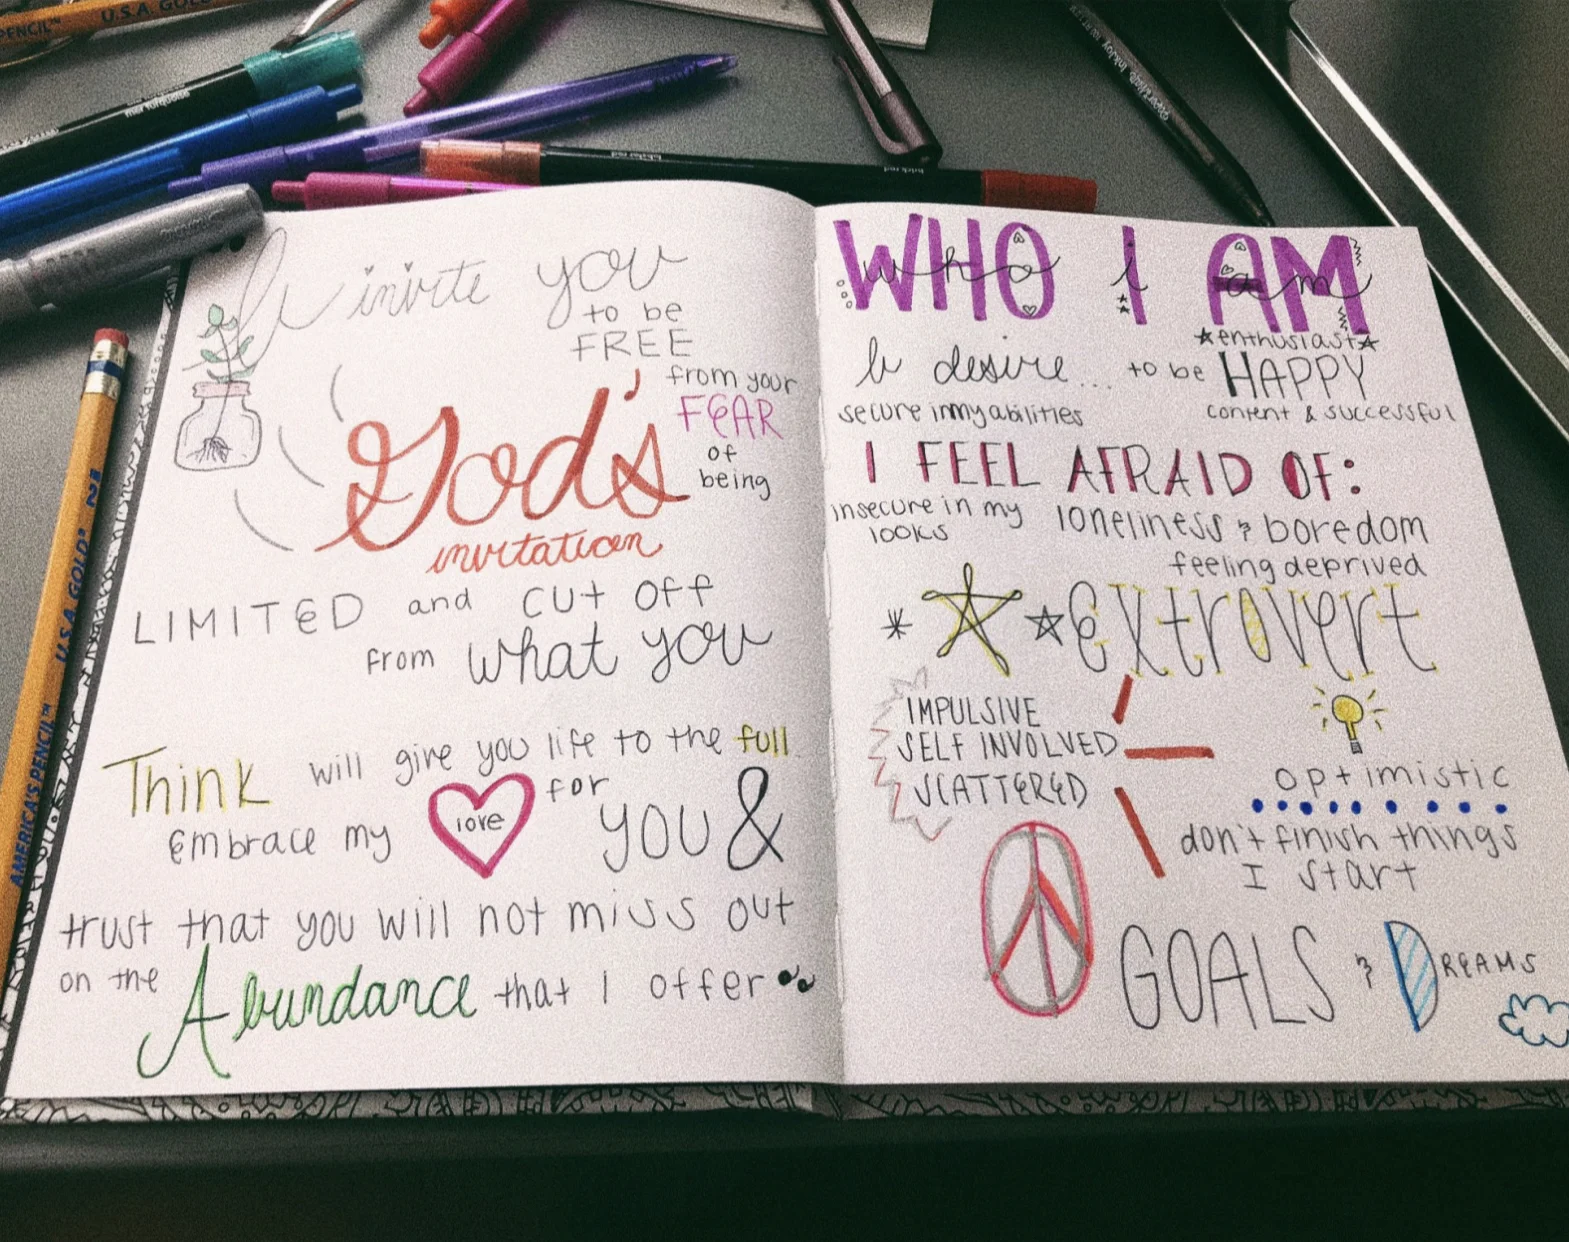 PENCIL™ U.S.A. GOLD
brick red
I invite you
to be
FREE
from your
FEAR
of
being
God's
invitation
LIMITED and cut off
from what you
Think will give you life to the full.
embrace my love for you &
trust that you will not miss out
on the Abundance that I offer
AMERICA'S PENCIL™ U.S.A. GOLD® Nº2
WHO I AM
who i am
enthusiast
I desire... to be HAPPY
secure in my abilities content & successful
I FEEL AFRAID OF:
insecure in my looks loneliness & boredom
feeling deprived
extrovert
IMPULSIVE
SELF INVOLVED
SCATTERED
optimistic
don't finish things
I start
GOALS & DREAMS